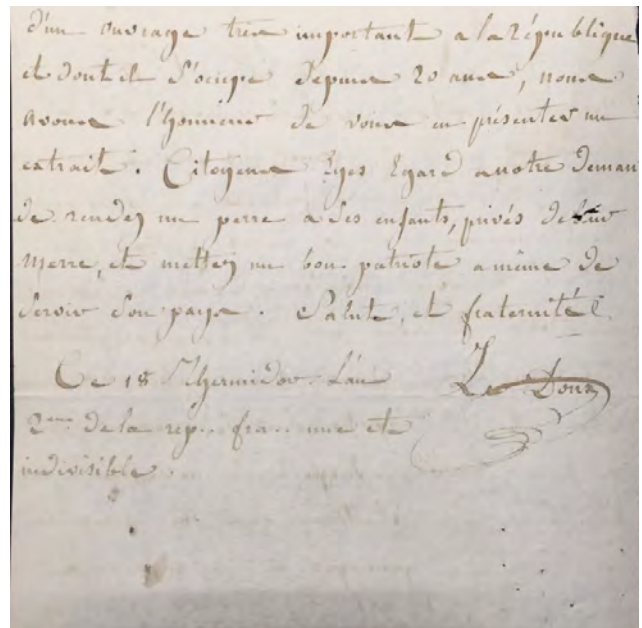 d'un ouvrage tres important a la République
et dont il s'ocupe depuis 20 ans, nous
avons l'honneur de vous en présenter un
extrait. Citoyens Ayes Egard a notre deman
de rendez un perre a ses enfants, privés de leur
merre, et mettez un bon patriote a même de
servir son pays. Salut, et fraternité
Ce 18 Thermidor L'an Le Doux
2eme de la rep.. fra.. une et
indivisible.